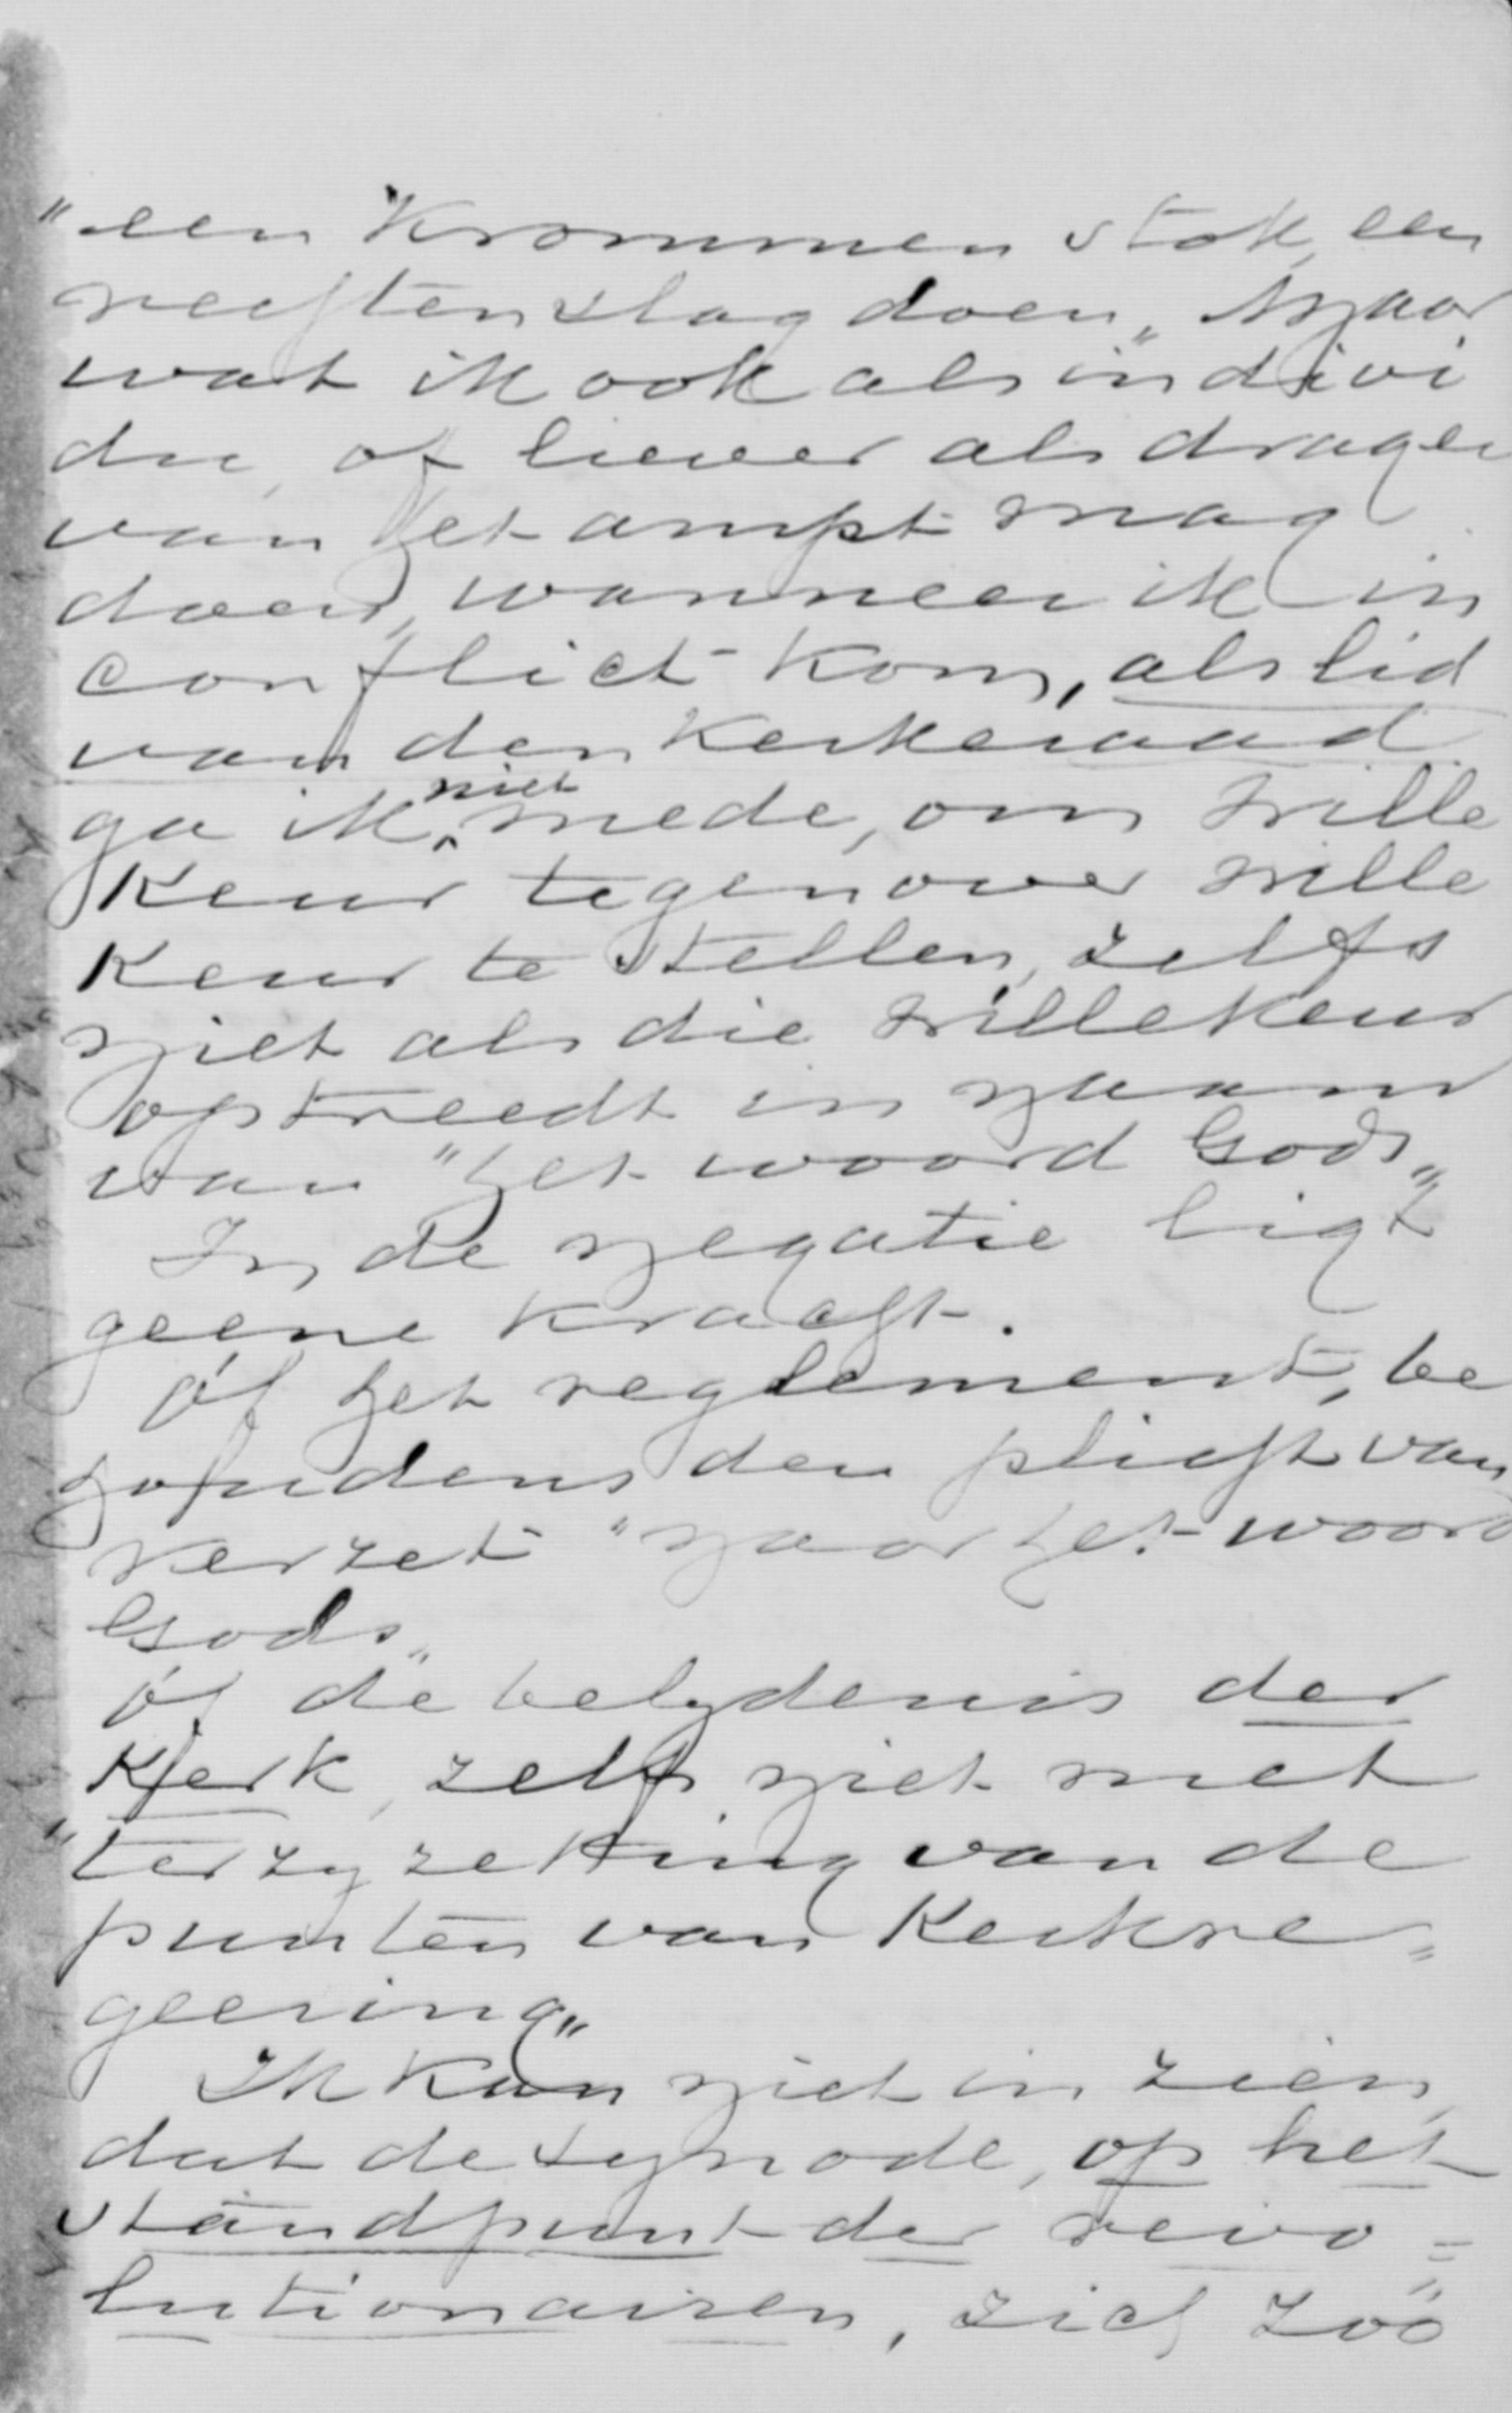 "een krommen stok, een
rechten slag doen„ Maar
wat ik ook als indivi
du, of liever als drager
van het ampt mag
doen, wanneer ik in
conflict kom, als lid
van den kerkeraad
ga ik niet mede, om wille
keur tegenover wille
keur te stellen, zelfs
niet als die willekeur
optreedt in naam
van "het woord Gods„
In de negatie ligt
geene kracht.
óf het reglement, be
houdens den plicht van
verzet "naar het woord
Gods„
óf de belydenis der
Kerk, zelfs niet met
"terzyzetting van de
punten van Kerkre„
geering„
Ik kan niet in zien,
dat de synode, op het
standpunt der revo=
lutionairen, zich zóó